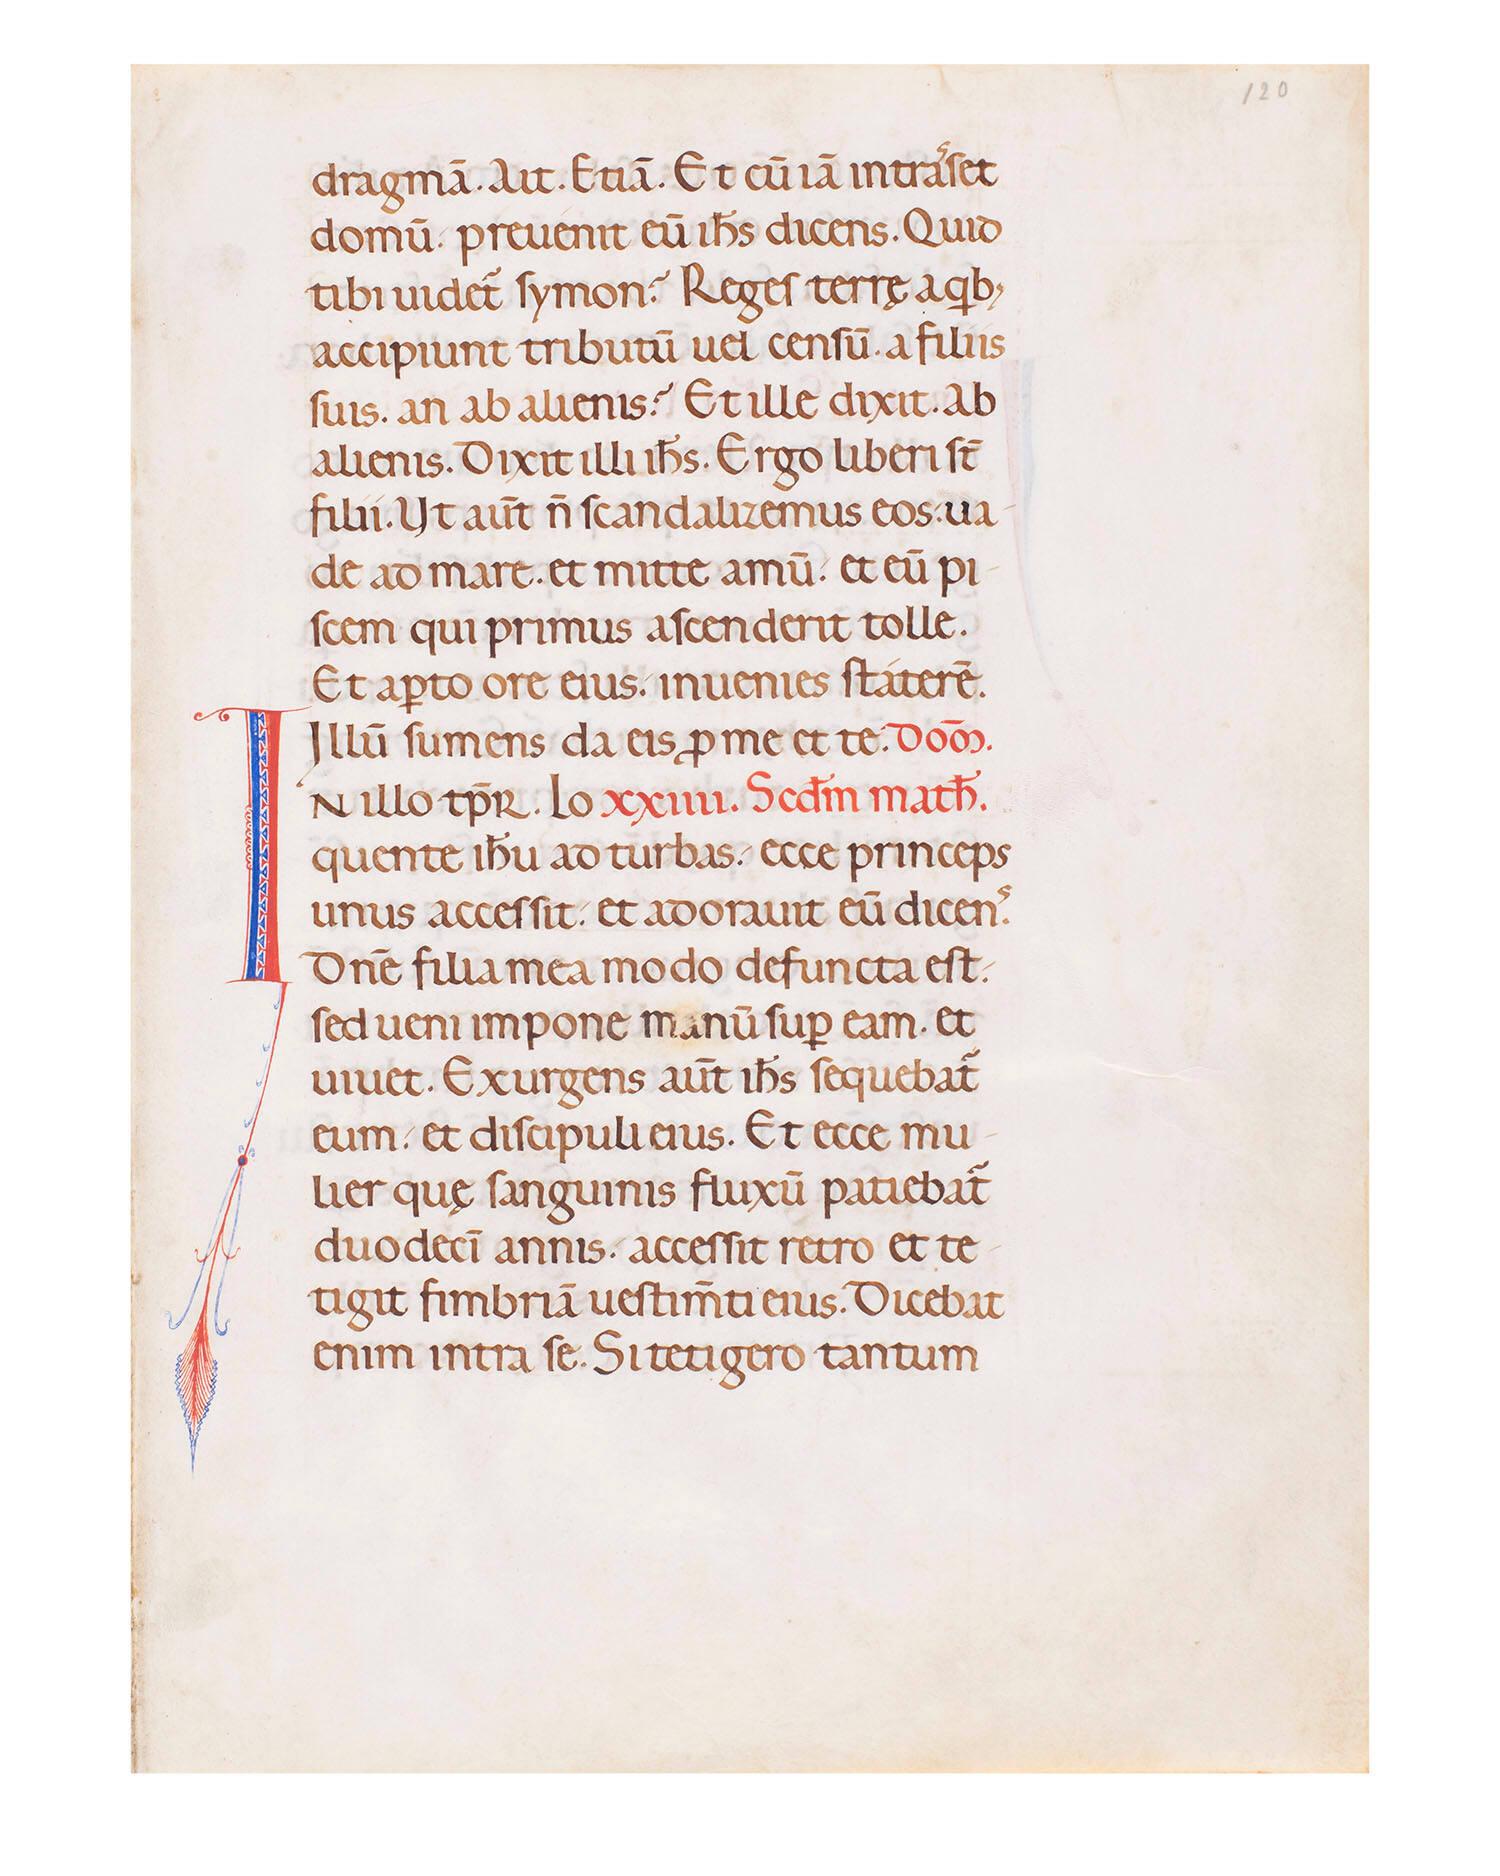 120
dragmā. Ait. Etiā. Et cū iā intraſ̄set
domū. preuenit eū ih̄s dicens. Quid
tibi uidet᷑ symon? Reges terrę a qib;
accipiunt tributū uel censū. a filiis
suis. an ab alienis? Et ille dixit. Ab
alienis. Dixit illi ih̄s. Ergo liberi st̄
filii. Ut aūt n̄ scandalizemus eos. ua-
de ad mare. et mitte amū. et eū pi-
scem qui primus ascenderit tolle.
Et aꝑto ore eius. inuenies staterē.
Illū sumens da eis ꝓ me et te. Dōm̄.
I N illo tp̄r. Lo xxiiii. Scd̄m math̄.
quente ih̄u ad turbas. ecce princeps
unus accessit. et adorauit eū dicenˢ.
Dn̄e filia mea modo defuncta est.
sed ueni impone manū suꝑ eam. et
uiuet. Exurgens aūt ih̄s sequebat᷑
eum. et discipuli eius. Et ecce mu-
lier quę sanguinis fluxū patiebat᷑
duodecī annis. accessit retro et te-
tigit fimbriā uestim̄ti eius. Dicebat
enim intra se. Si tetigero tantum